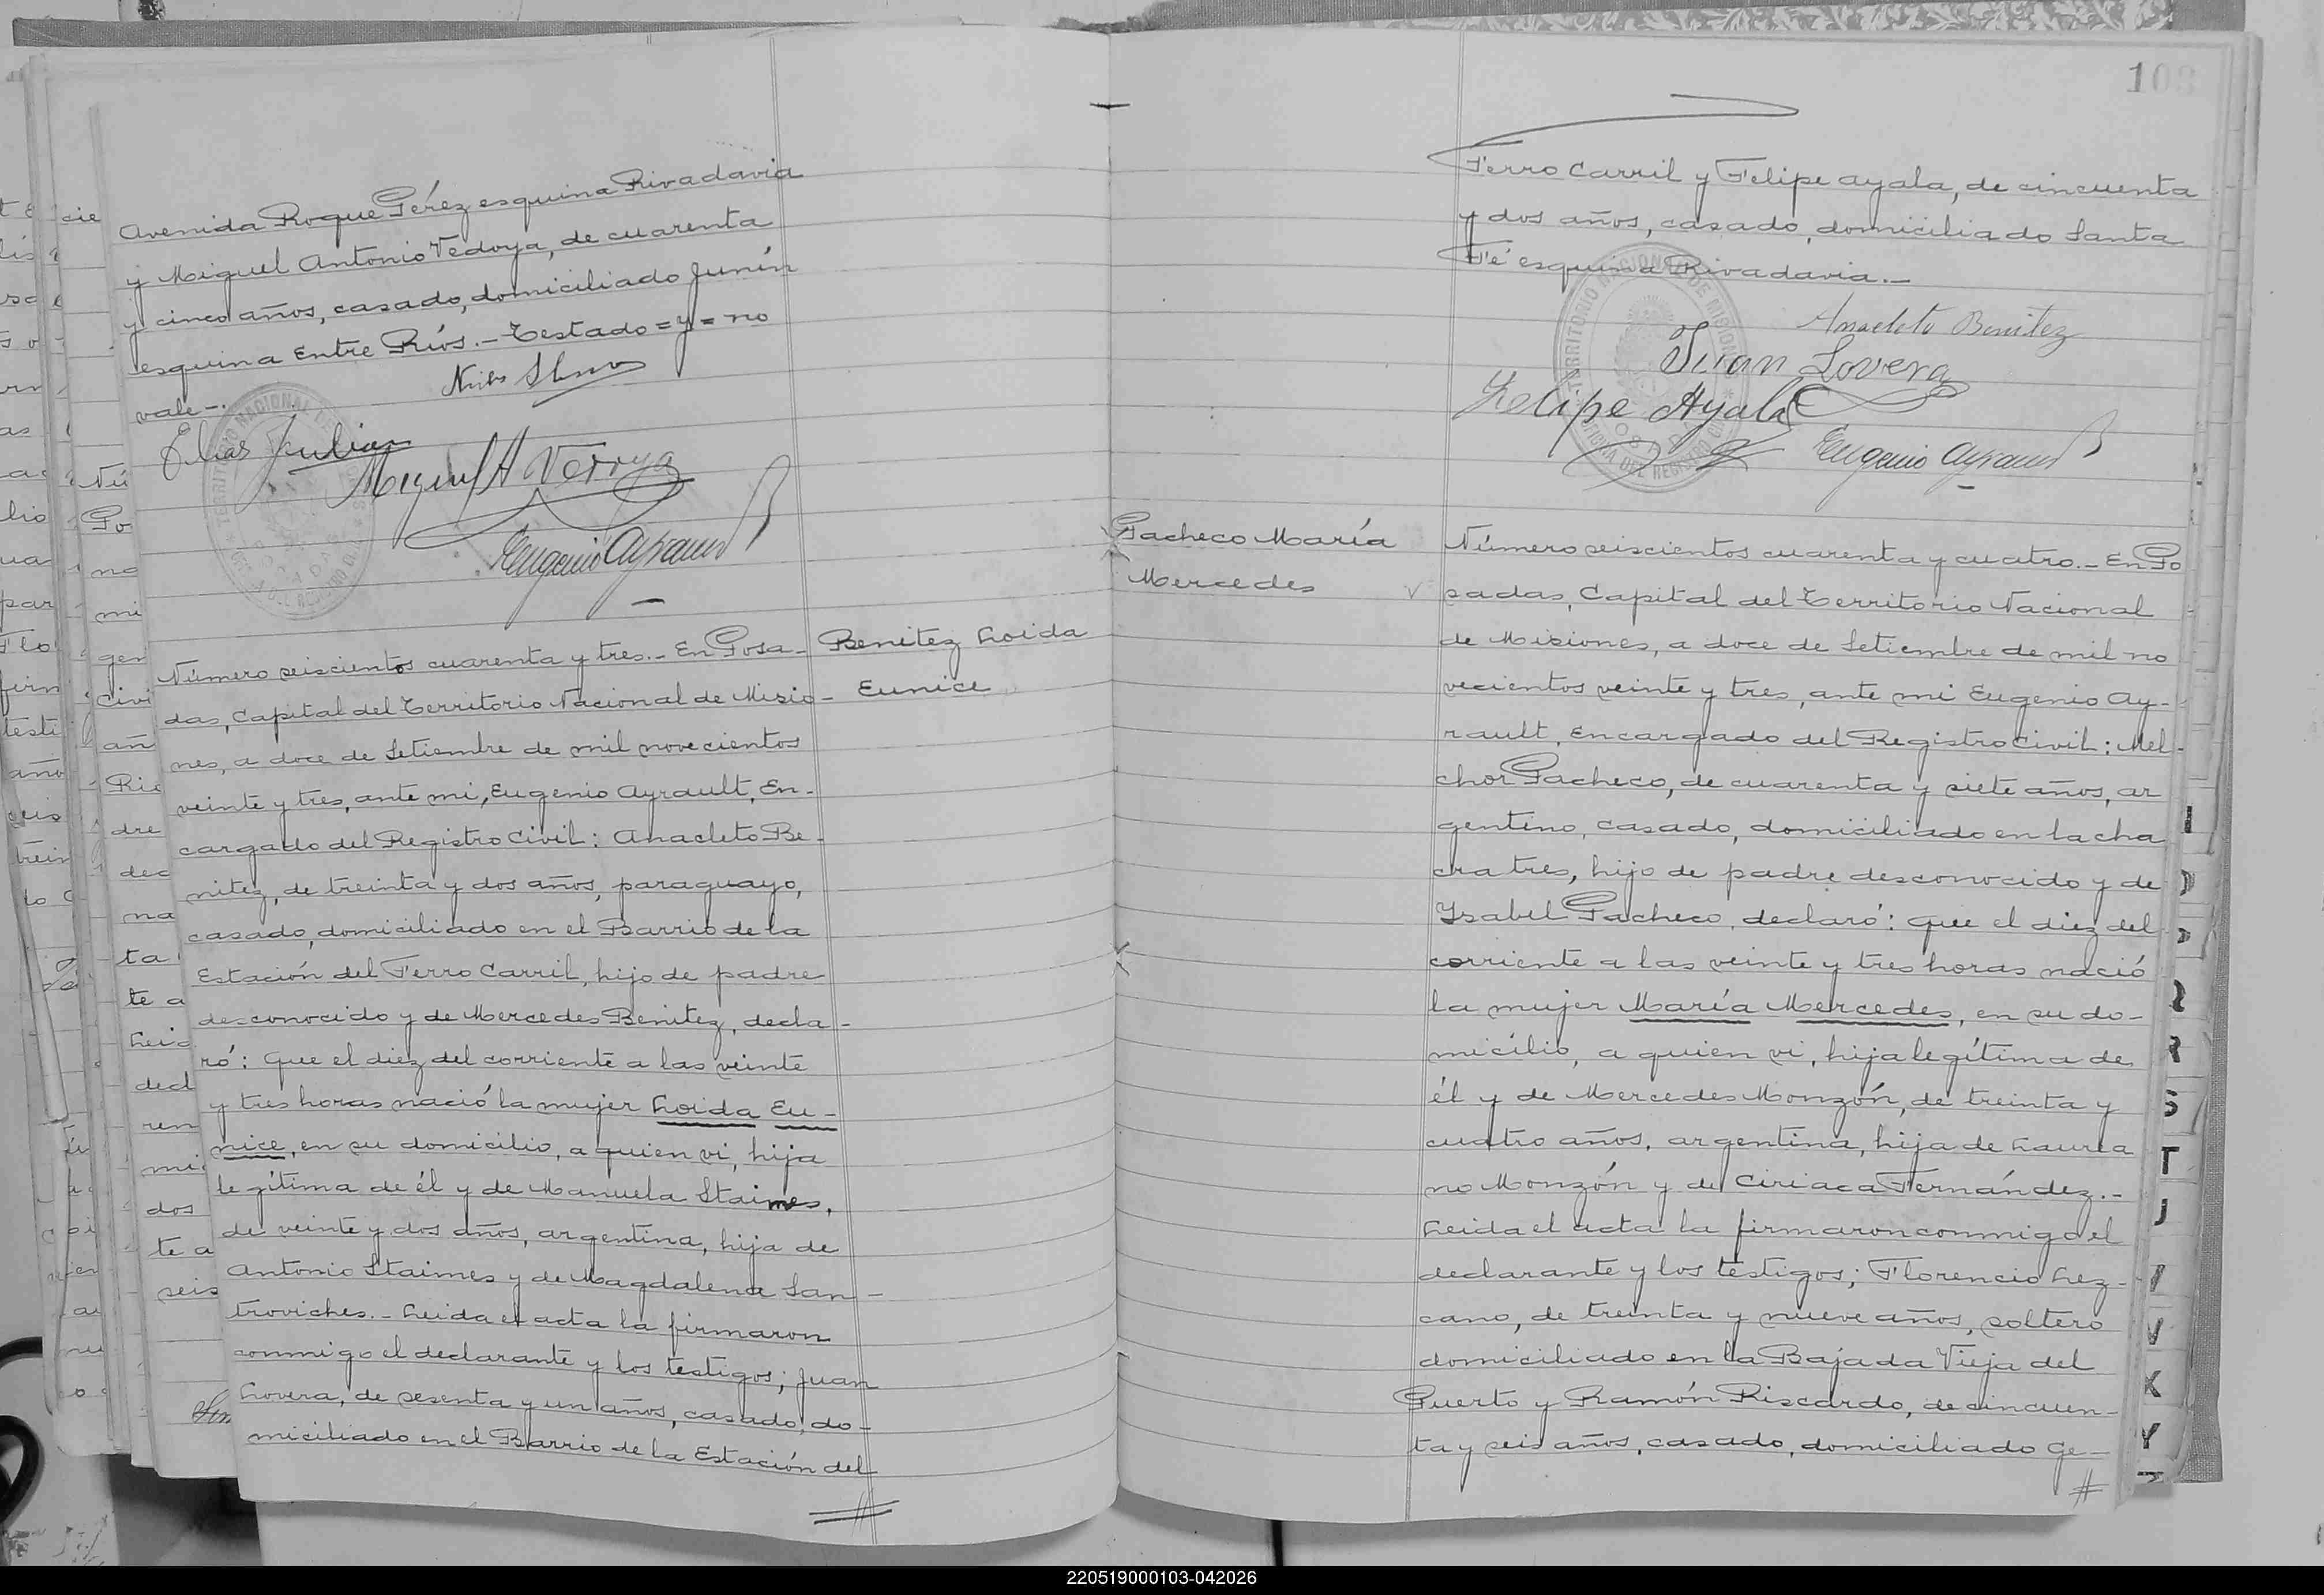 Avenida Roque Pérez esquina Rivadavia
y Miguel Antonio Vedoya, de cuarenta
y cinco años, casado, domiciliado Junín
esquina Entre Ríos.- Testado=y=no
vale-.
Elías Julian
Miguel A Vedoya
Eugenio Ayrault
Número seiscientos cuarenta y tres.- En Posa-
das, Capital del Territorio Nacional de Misio-
nes, a doce de Setiembre de mil novecientos
veinte y tres, ante mi, Eugenio Ayrault, En-
cargado del Registro Civil: Anacleto Be-
nitez, de treinta y dos años, paraguayo,
casado, domiciliado en el Barrio de la
Estación del Ferro Carril, hijo de padre
desconocido y de Mercedes Benitez, decla-
ró: Que el diez del corriente a las veinte
y tres horas nació la mujer Loida Eu-
nice, en su domicilio, a quien vi, hija
legítima de él y de Manuela Staimes,
de veinte y dos años, argentina, hija de
Antonio Staimes y de Magdalena San-
troviches.- Leida el acta la firmaron
conmigo el declarante y los testigos; Juan
Lovera, de sesenta y un años, casado, do-
miciliado en el Barrio de la Estación del
Benitez Loida
Eunice
108
Ferro Carril y Felipe Ayala, de cincuenta
y dos años, casado, domiciliado Santa
Fé esquina Rivadavia.-
Anacleto Benitez
Juan Lovera
Felipe Ayala
Eugenio Ayrault
Pacheco María
Mercedes
Número seiscientos cuarenta y cuatro.- En Po
sadas, Capital del Territorio Nacional
de Misiones, a doce de Setiembre de mil no
vecientos veinte y tres, ante mi Eugenio Ay-
rault, Encargado del Registro Civil: Mel-
chor Pacheco, de cuarenta y siete años, ar
gentino, casado, domiciliado en la cha
cra tres, hijo de padre desconocido y de
Ysabel Pacheco, declaró: Que el diez del
corriente a las veinte y tres horas nació
la mujer María Mercedes, en su do-
micilio, a quien vi, hija legítima de
él y de Mercedes Monzón, de treinta y
cuatro años, argentina, hija de Laurea
no Monzón y de Ciriaca Fernández.-
Leida el acta la firmaron conmigo el
declarante y los testigos; Florencio Lez-
cano, de treinta y nueve años, soltero
domiciliado en la Bajada Vieja del
Puerto y Ramón Riscardo, de cincuen-
ta y seis años, casado, domiciliado Ge-
220519000103-042026